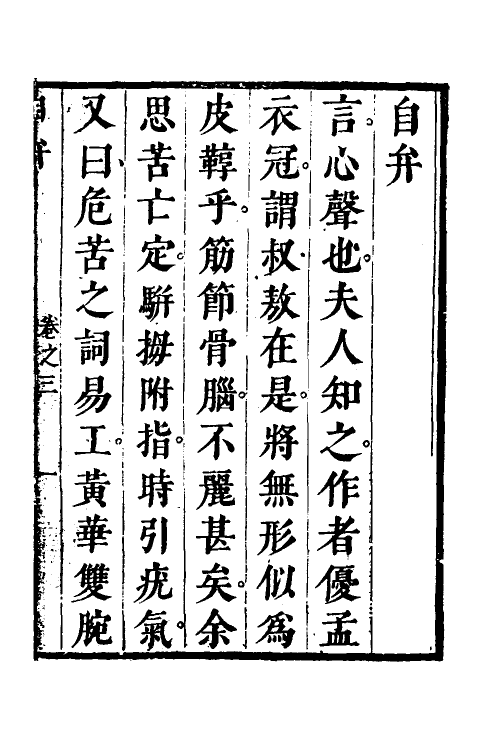 自弁
言心聲也夫人知之作者優孟
衣冠謂叔敖在是將無形似為
皮鞟乎筋節骨腦不麗甚矣余
思苦亡定駢拇附指時引疣氣
又曰危苦之詞易工黃華雙腕
卷之三